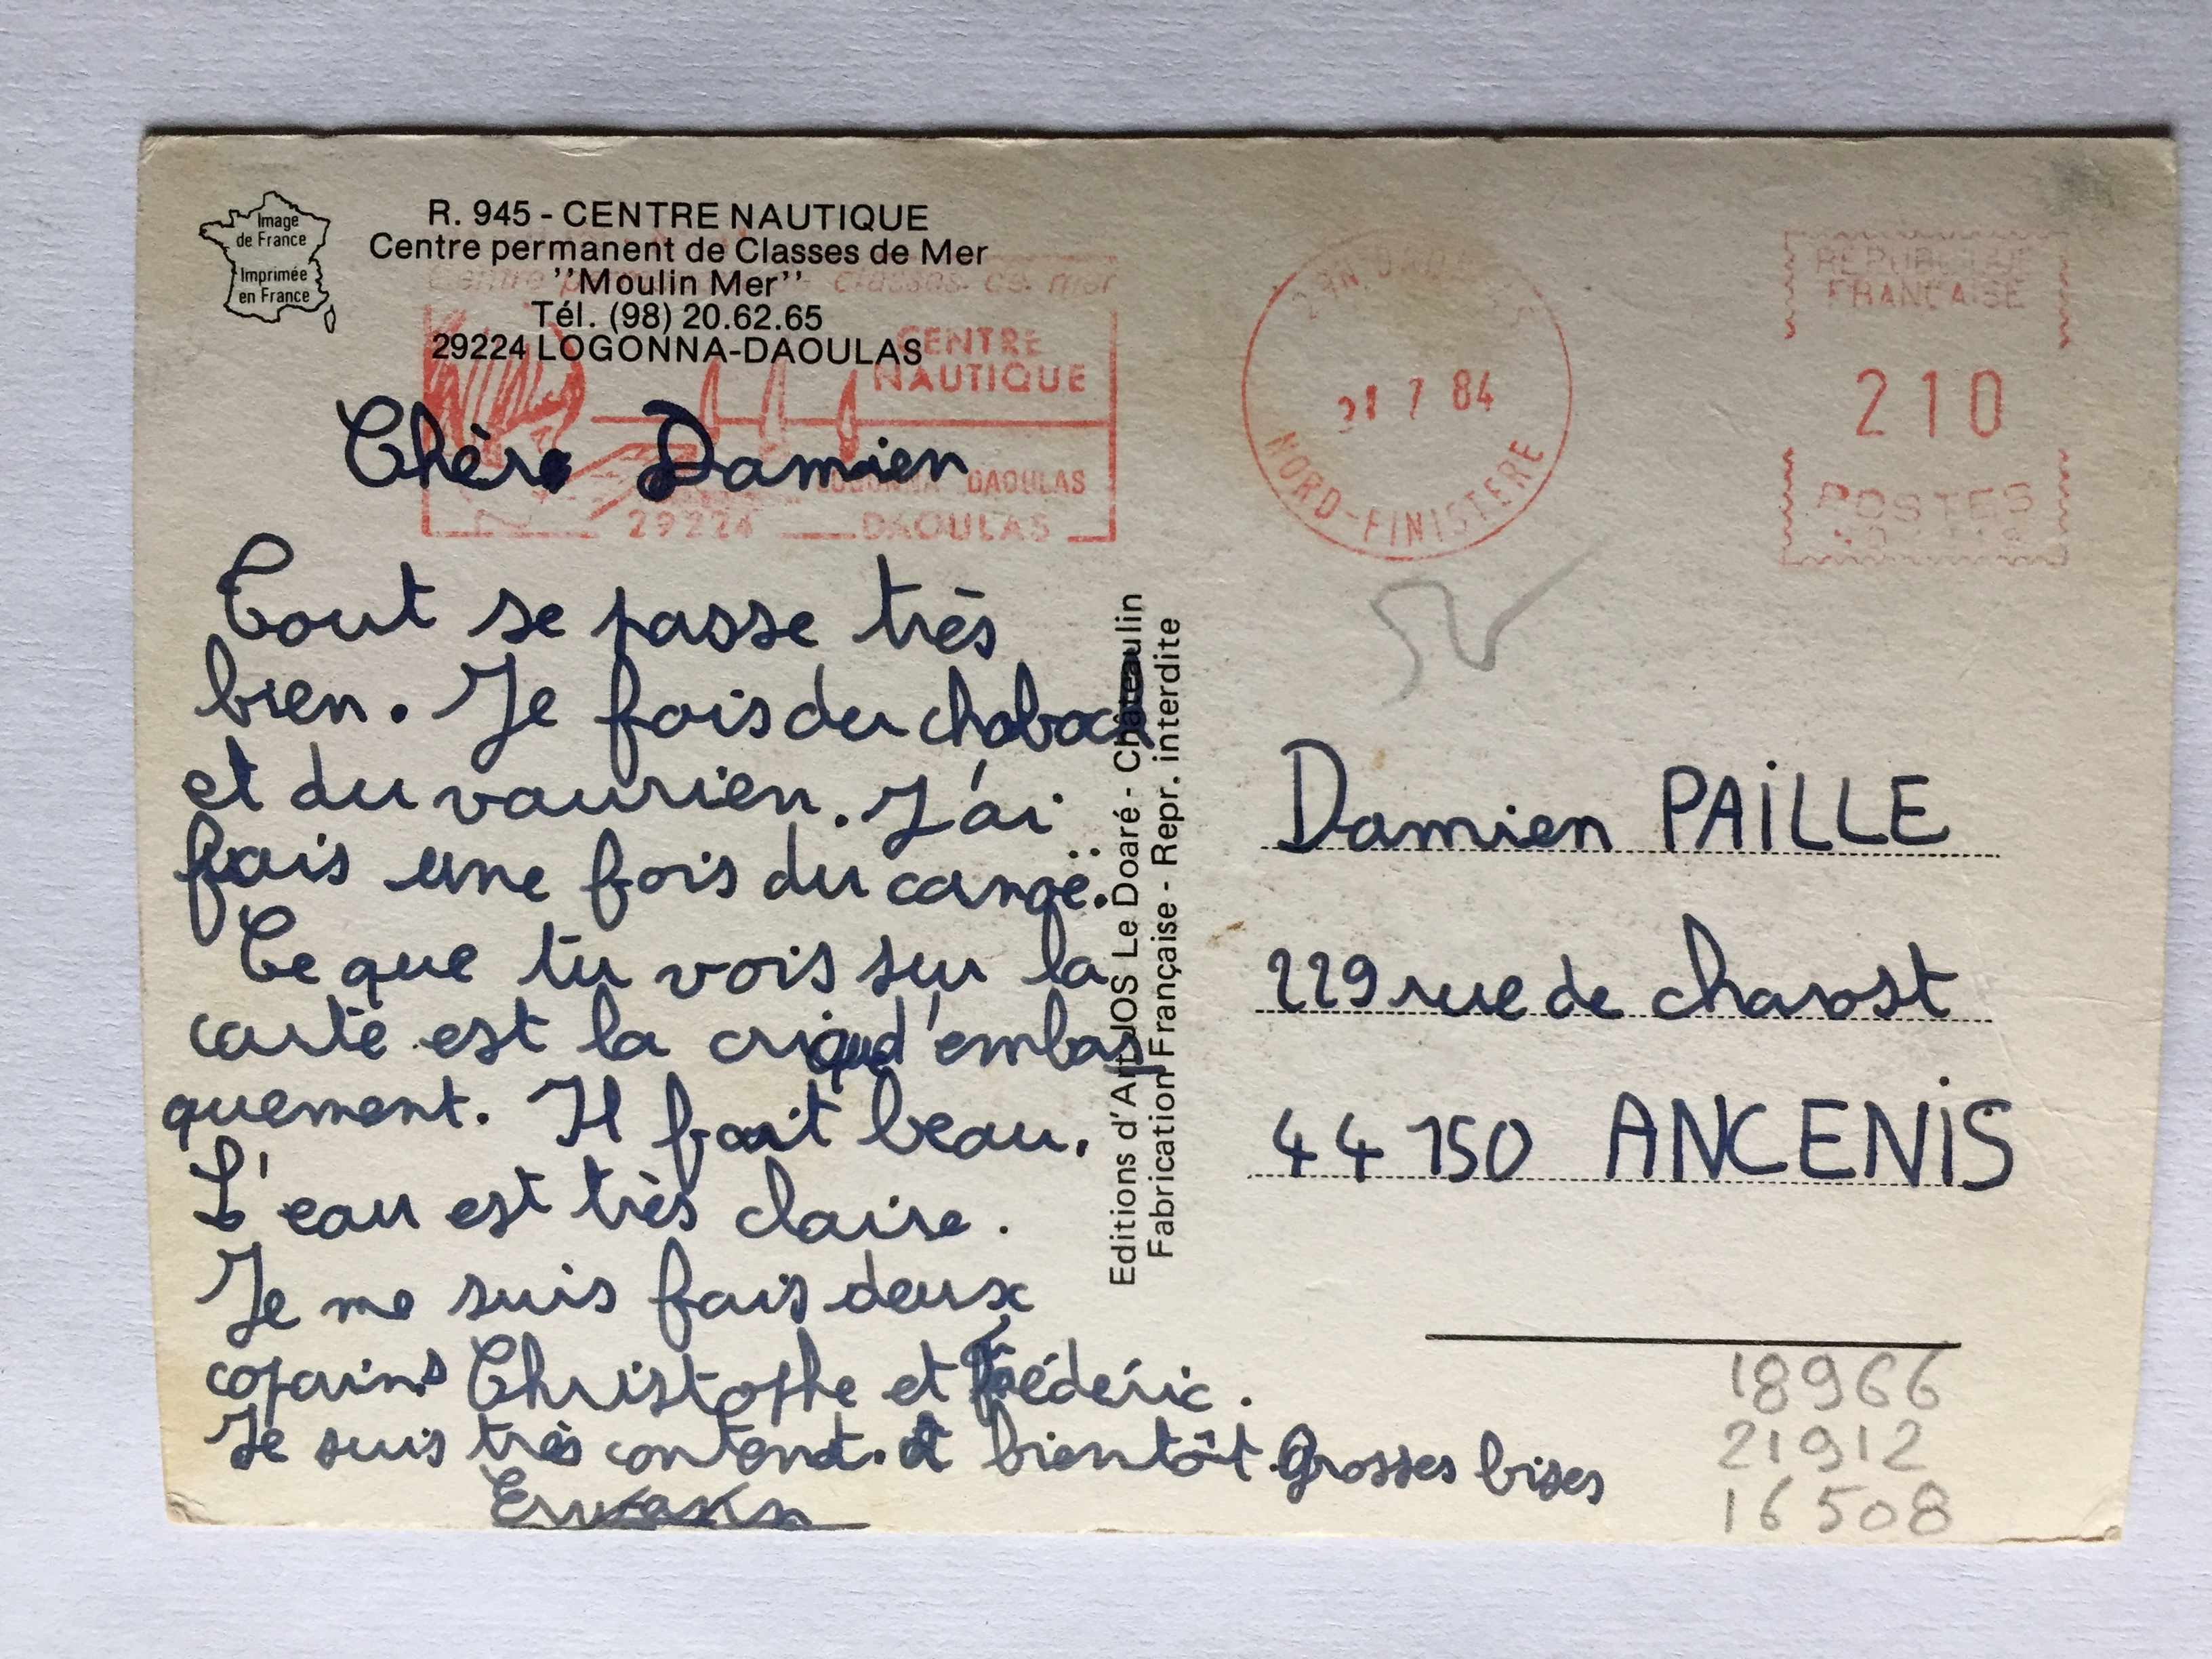 Image
de France
Imprimée
en France
R. 945 - CENTRE NAUTIQUE
Centre permanent de Classes de Mer
''Moulin Mer''
Tél. (98) 20.62.65
29224 LOGONNA-DAOULAS
classes de mer
CENTRE
NAUTIQUE
LOGONNA DAOULAS
29224 DAOULAS
7 84
NORD-FINISTERE
REPUBLIQUE
FRANCAISE
210
POSTES
Chère Damien
Tout se passe très
bien. Je fais du
et du vaurien. J'ai
fais une fois du canoë.
Ce que tu vois sur la
carte est la criqu d'embar
quement. Il fait beau.
L'eau est très claire.
Je me suis fais deux
copains Christophe et Frédéric.
Je suis très content. A bientôt. Grosses bises
Erwann
Editions d'Art JOS Le Doaré - Châteaulin
Fabrication Française - Repr. interdite
Damien PAiLLE
229 rue de charost
44 150 ANCENiS
18966
21912
16508